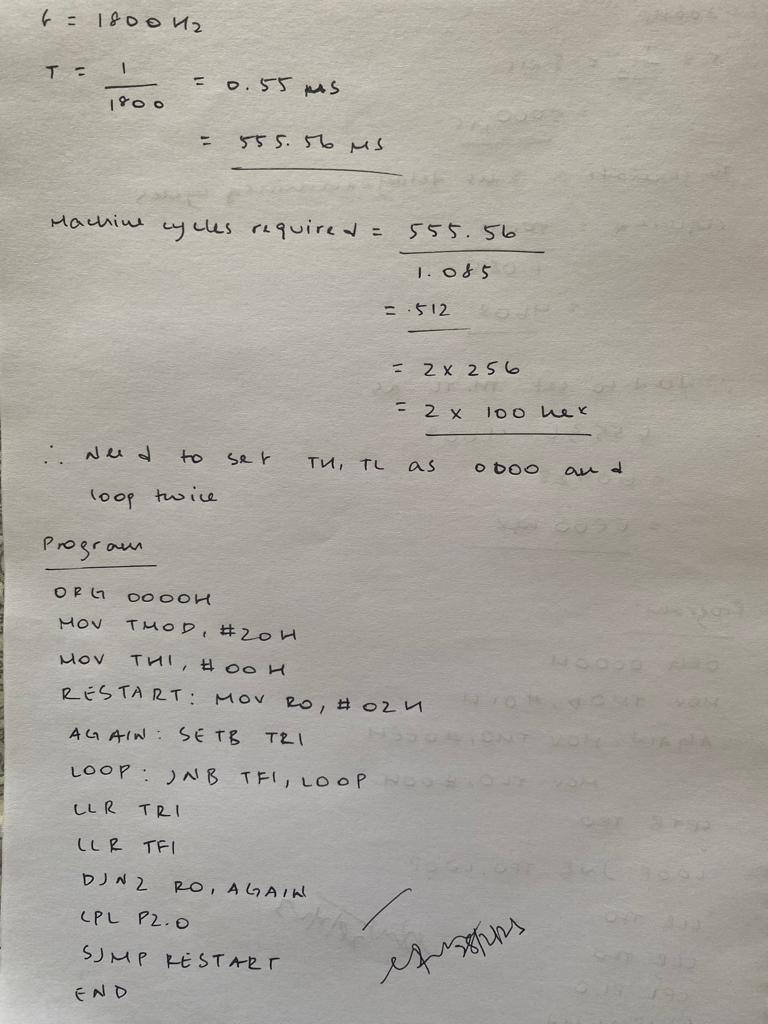 f = 1800 Hz
T = 1/1800 = 0.55 ms
= 555.56 μs
Machine cycles required = 555.56/1.085
= 512
= 2 x 256
= 2 x 100 hex
∴ Need to set TH, TL as 0000 and
loop twice
Program
ORG 0000H
MOV TMOD, #20H
MOV TH1, #00H
RESTART: MOV R0, #02H
AGAIN: SETB TR1
LOOP: JNB TF1, LOOP
CLR TR1
CLR TF1
DJNZ R0, AGAIN
CPL P2.0
SJMP RESTART
END